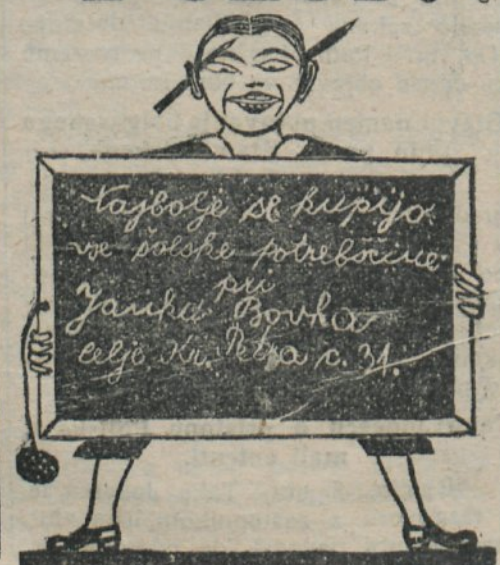 Najbolje se kupijo
vse šolske potrebščine
pri
Janku Bovha
Celje Kr. Petra c. 31.